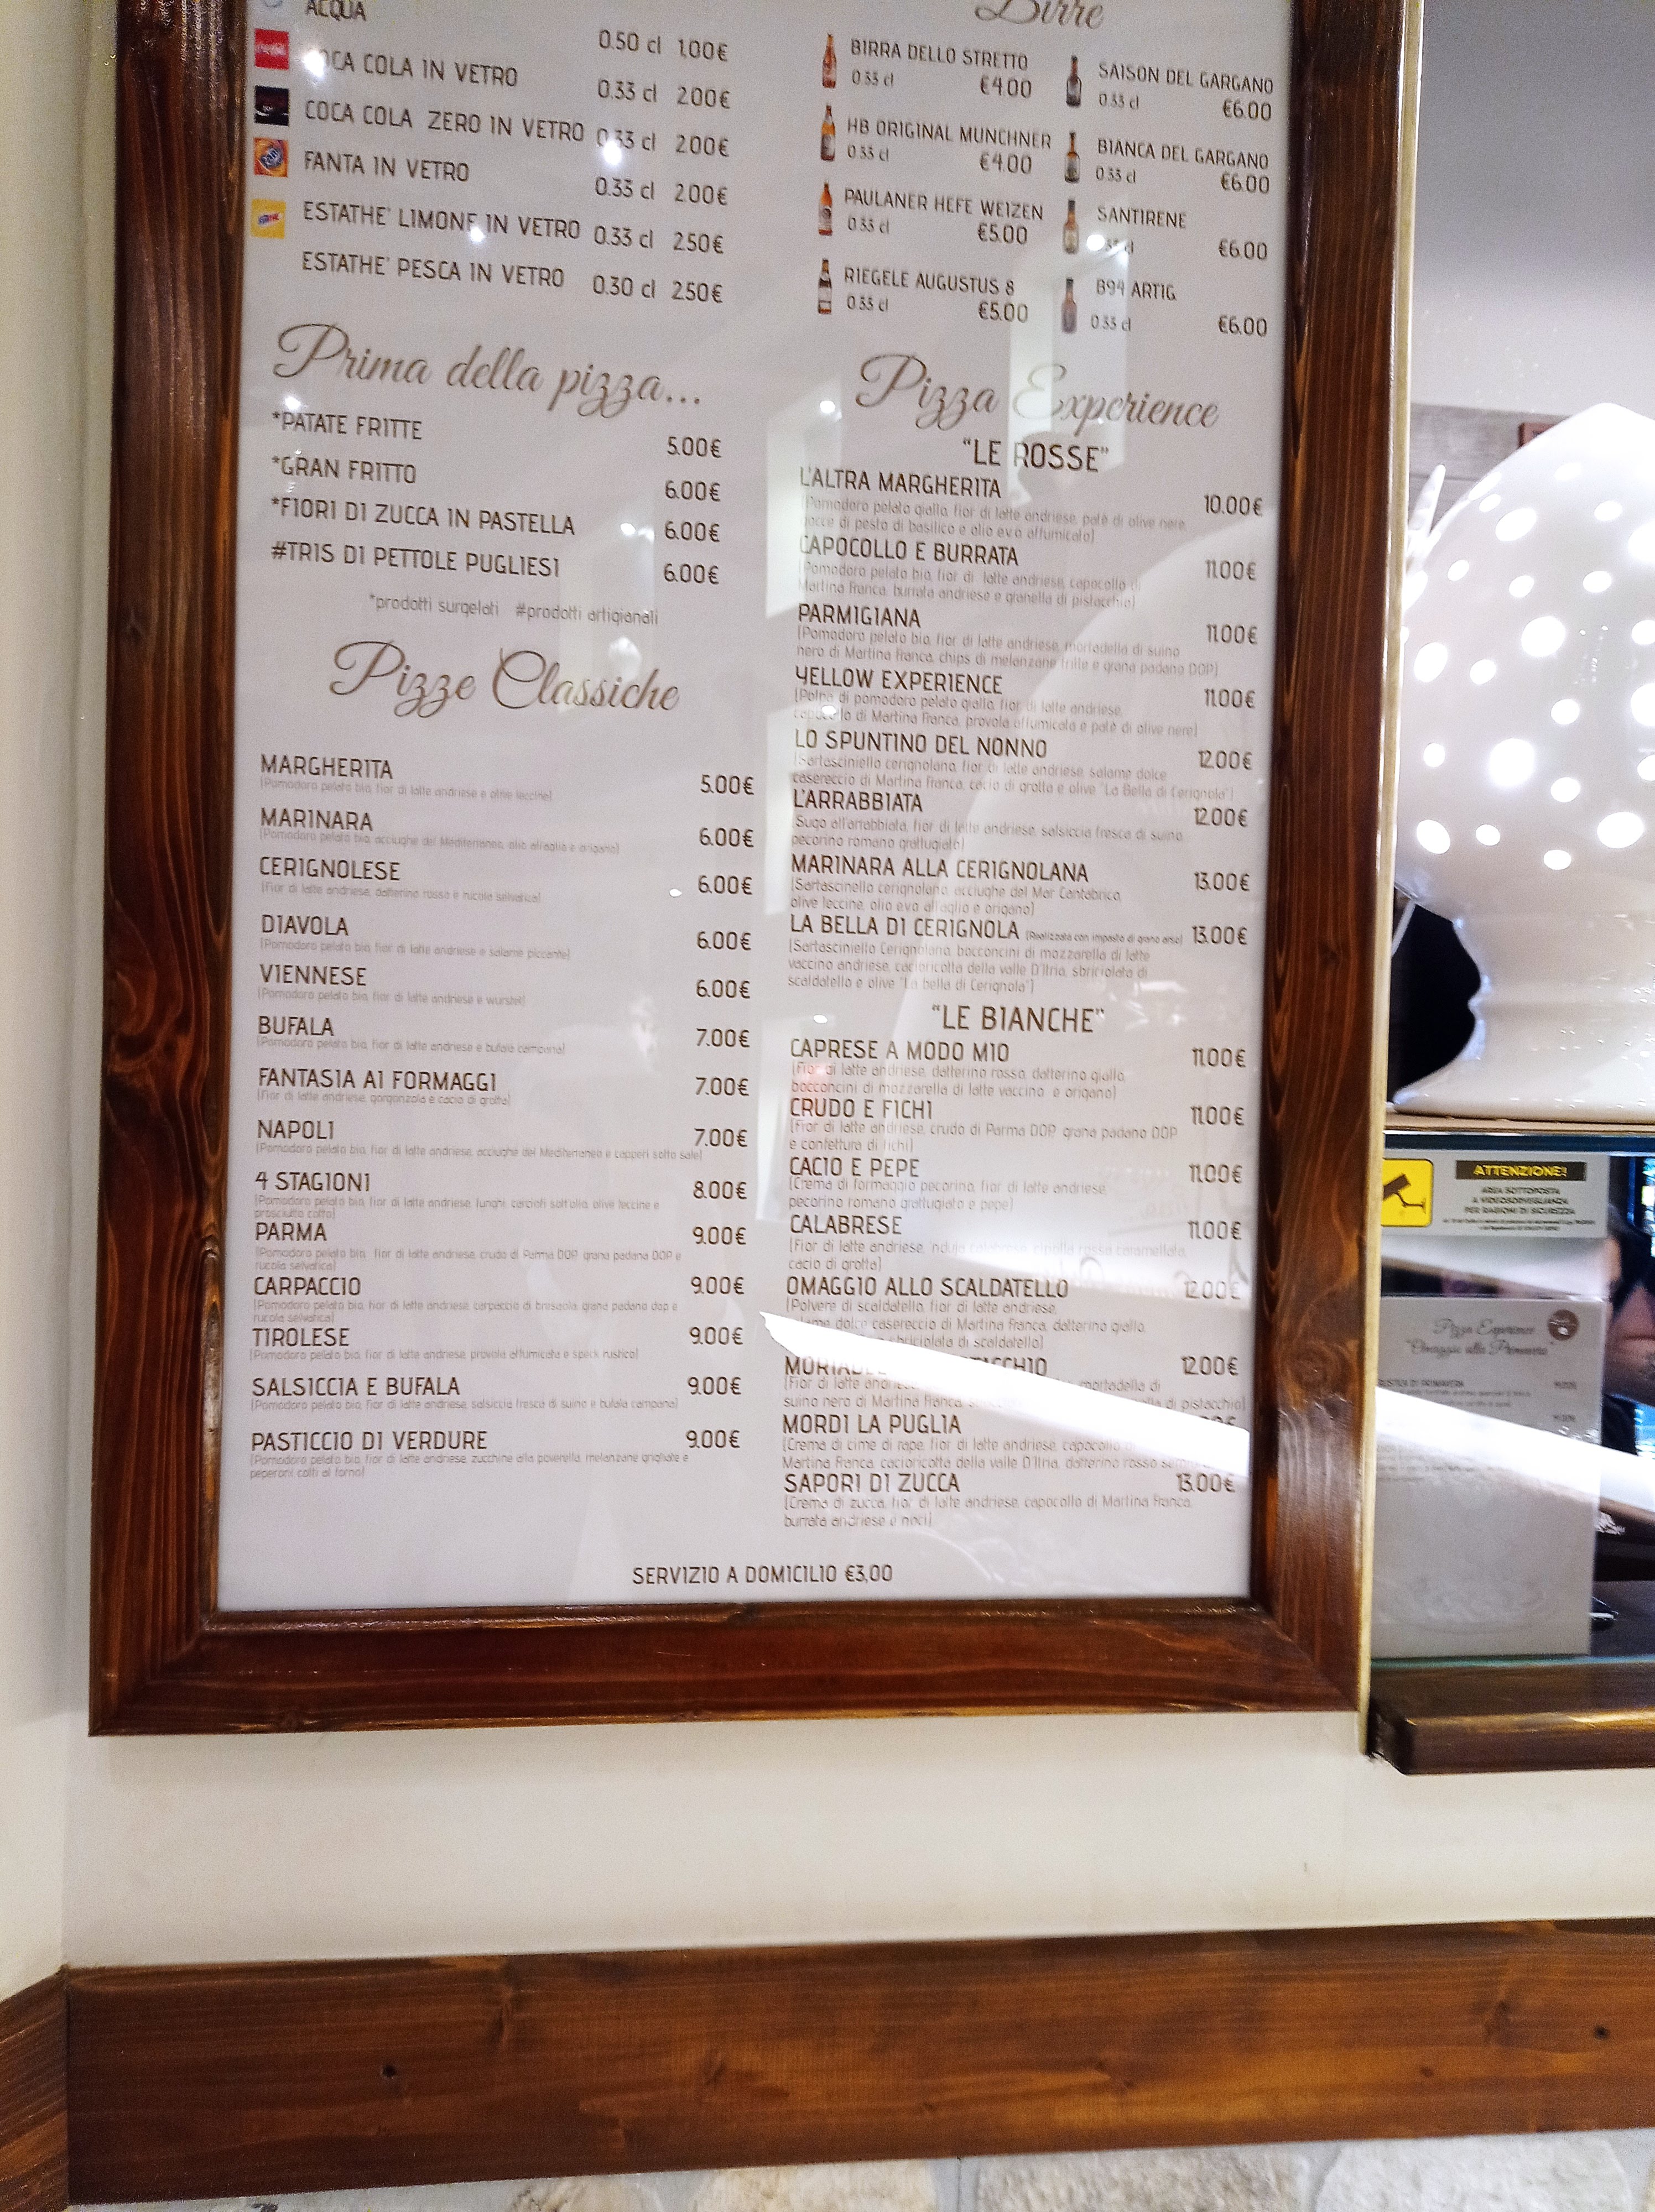 ACQUA 0.50 cl 1.00€
COCA COLA IN VETRO 0.33 cl 2.00€
COCA COLA ZERO IN VETRO 0.33 cl 2.00€
FANTA IN VETRO 0.33 cl 2.00€
ESTATHE' LIMONE IN VETRO 0.33 cl 2.50€
ESTATHE' PESCA IN VETRO 0.30 cl 2.50€
Prima della pizza...
*PATATE FRITTE 5.00€
*GRAN FRITTO 6.00€
*FIORI DI ZUCCA IN PASTELLA 6.00€
#TRIS DI PETTOLE PUGLIESI 6.00€
*prodotti surgelati #prodotti artigianali
Pizze Classiche
MARGHERITA 5.00€
(Pomodoro pelato bio, fior di latte andriese e olive leccine)
MARINARA 6.00€
(Pomodoro pelato bio, acciughe del Mediterraneo, olio all'aglio e origano)
CERIGNOLESE 6.00€
(Fior di latte andriese, datterino rosso e rucola selvatica)
DIAVOLA 6.00€
(Pomodoro pelato bio, fior di latte andriese e salame piccante)
VIENNESE 6.00€
(Pomodoro pelato bio, fior di latte andriese e wurstel)
BUFALA 7.00€
(Pomodoro pelato bio, fior di latte andriese e bufala campana)
FANTASIA AI FORMAGGI 7.00€
(Fior di latte andriese, gorgonzola e cacio di grotta)
NAPOLI 7.00€
(Pomodoro pelato bio, fior di latte andriese, acciughe del Mediterraneo e capperi sotto sale)
4 STAGIONI 8.00€
(Pomodoro pelato bio, fior di latte andriese, funghi, carciofi sott'olio, olive leccine e
prosciutto cotto)
PARMA 9.00€
(Pomodoro pelato bio, fior di latte andriese, crudo di Parma DOP, grana padano DOP e
rucola selvatica)
CARPACCIO 9.00€
(Pomodoro pelato bio, fior di latte andriese, carpaccio di bresaola, grana padano dop e
rucola selvatica)
TIROLESE 9.00€
(Pomodoro pelato bio, fior di latte andriese, provola affumicata e speck rustico)
SALSICCIA E BUFALA 9.00€
(Pomodoro pelato bio, fior di latte andriese, salsiccia fresca di suino e bufala campana)
PASTICCIO DI VERDURE 9.00€
(Pomodoro pelato bio, fior di latte andriese, zucchine alla poverella, melanzane grigliate e
peperoni cotti al forno)
Birre
BIRRA DELLO STRETTO
0.33 cl €4.00
HB ORIGINAL MUNCHNER
0.33 cl €4.00
PAULANER HEFE WEIZEN
0.33 cl €5.00
RIEGELE AUGUSTUS 8
0.33 cl €5.00
SAISON DEL GARGANO
0.33 cl €6.00
BIANCA DEL GARGANO
0.33 cl €6.00
SANTIRENE
0.33 cl €6.00
B94 ARTIG.
0.33 cl €6.00
Pizza Experience
"LE ROSSE"
L'ALTRA MARGHERITA 10.00€
(Pomodoro pelato giallo, fior di latte andriese, patè di olive nere,
gocce di pesto di basilico e olio evo affumicato)
CAPOCOLLO E BURRATA 11.00€
(Pomodoro pelato bio, fior di latte andriese, capocollo di
Martina Franca, burrata andriese e granella di pistacchio)
PARMIGIANA 11.00€
(Pomodoro pelato bio, fior di latte andriese, mortadella di suino
nero di Martina Franca, chips di melanzane fritte e grana padano DOP)
YELLOW EXPERIENCE 11.00€
(Polpa di pomodoro pelato giallo, fior di latte andriese,
capocollo di Martina Franca, provola affumicata e patè di olive nere)
LO SPUNTINO DEL NONNO 12.00€
(Sartasciniello cerignolano, fior di latte andriese, salame dolce
casereccio di Martina Franca, cacio di grotta e olive "La Bella di Cerignola")
L'ARRABBIATA 12.00€
(Sugo all'arrabbiata, fior di latte andriese, salsiccia fresca di suino,
pecorino romano grattugiato)
MARINARA ALLA CERIGNOLANA 13.00€
(Sartascinello cerignolano, acciughe del Mar Cantabrico,
olive leccine, olio evo all'aglio e origano)
LA BELLA DI CERIGNOLA (Realizzata con impasto di grano arso) 13.00€
(Sartasciniello Cerignolano, bocconcini di mozzarella di latte
vaccino andriese, cacioricotta della valle D'Itria, sbriciolata di
scaldatello e olive "La bella di Cerignola")
"LE BIANCHE"
CAPRESE A MODO MIO 11.00€
(Fior di latte andriese, datterino rosso, datterino giallo,
bocconcini di mozzarella di latte vaccino e origano)
CRUDO E FICHI 11.00€
(Fior di latte andriese, crudo di Parma DOP, grana padano DOP
e confettura di fichi)
CACIO E PEPE 11.00€
(Crema di formaggio pecorino, fior di latte andriese,
pecorino romano grattugiato e pepe)
CALABRESE 11.00€
(Fior di latte andriese, 'nduja calabrese, cipolla rossa caramellata,
cacio di grotta)
OMAGGIO ALLO SCALDATELLO 12.00€
(Polvere di scaldatello, fior di latte andriese,
dolce casereccio di Martina Franca, datterino giallo,
sbriciolata di scaldatello)
12.00€
(Fior di latte mortadella di
suino nero di Martina Franca, di pistacchio)
MORDI LA PUGLIA
(Crema di cime di rape, fior di latte andriese, capocollo
Martina Franca, cacioricotta della valle D'Itria, datterino rosso
SAPORI DI ZUCCA 13.00€
(Crema di zucca, fior di latte andriese, capocollo di Martina Franca,
burrata andriese e noci)
SERVIZIO A DOMICILIO €3,00
ATTENZIONE!
AREA SOTTOPOSTA
A VIDEOSORVEGLIANZA
PER RAGIONI DI SICUREZZA
Pizza Experience
"Omaggio alla Primavera"